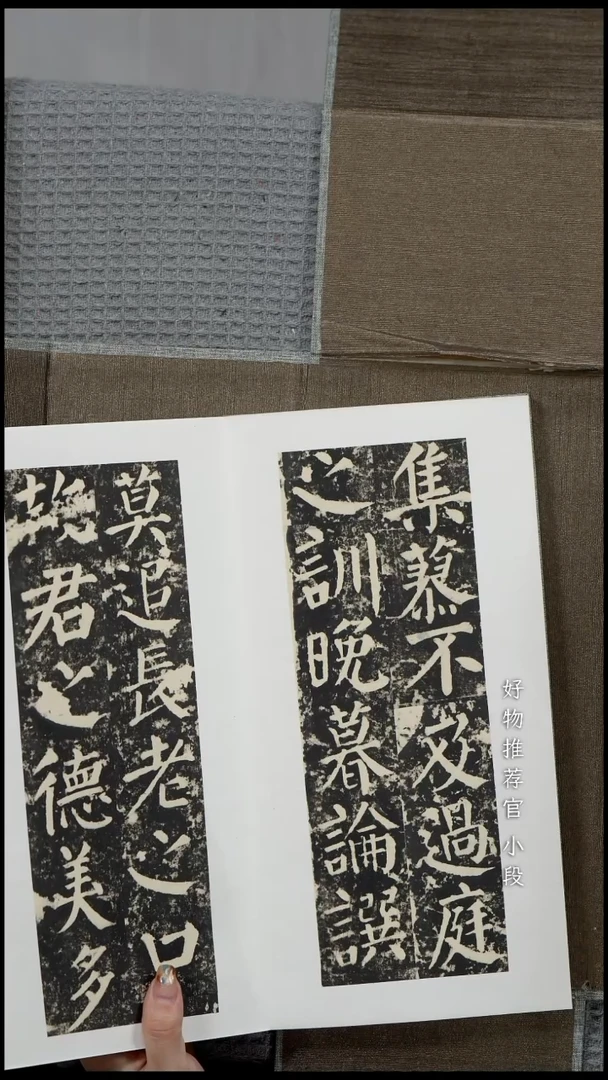 集慕不及過庭
之訓晚暮論譔
莫追長老之口
故君之德美多
好物推荐官 小段